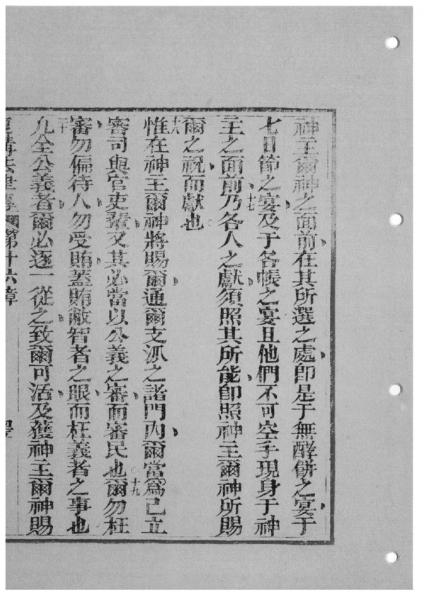 神主爾神之面前在其所選之處即是于無酵餅之宴于
七日節之宴及于各帳之宴且他們不可空手現身于神
主之面前乃十七各人之獻須照其所能即照神主爾神所賜
爾之祝而獻也
十八惟在神主爾神將賜爾通爾支派之諸門內爾當為己立
審司與官吏輩又其必當以公義之審而審民也十九爾勿枉
審勿偏待人勿受賄蓋賄蔽智者之眼而枉義者之事也
二十凡全公義者爾必逐一從之致爾可活及獲神主爾神賜
第十六章